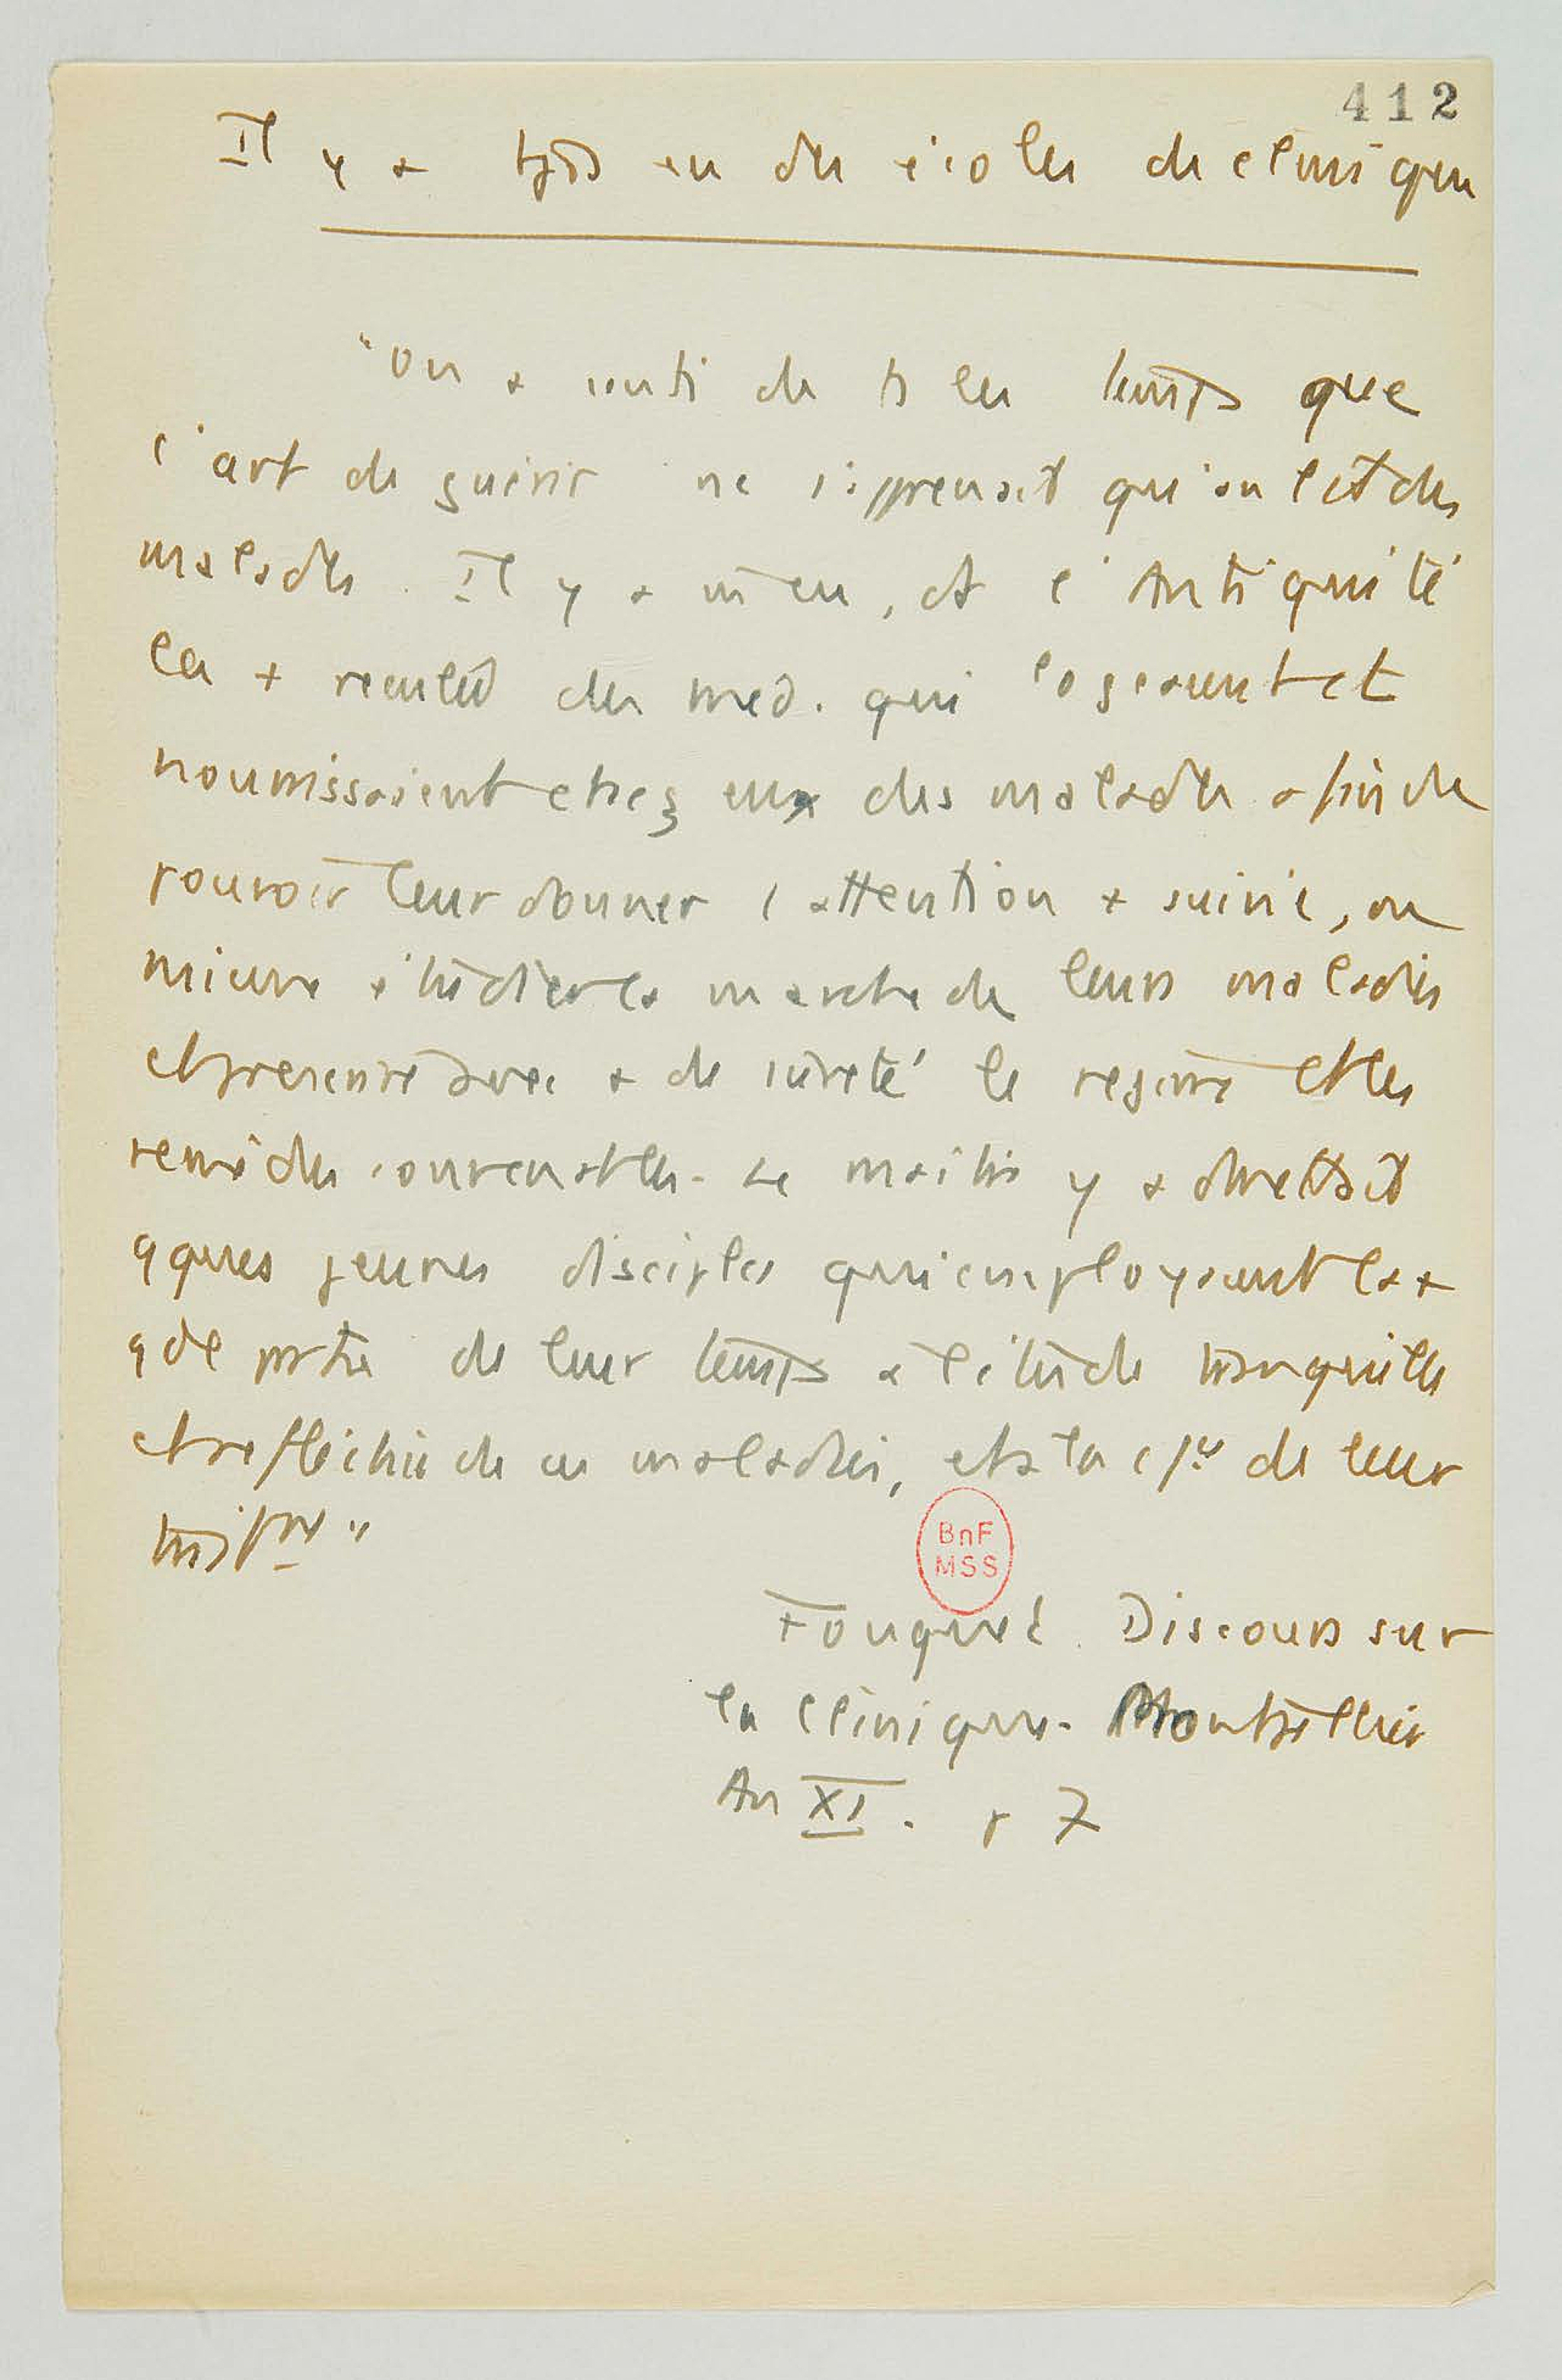 412
Il y a tjrs eu des écoles de clinique
"On a senti de ts les temps que
l'art de guérir ne s'apprenait qu'au lit des
malades. Il y a eu, ds l'Antiquité
la + reculée des med. qui logeaient et
nourrissaient chez eux des malades afin de
pouvoir leur donner l'attention + suivie, ou
mieux étudier la marche de leurs maladies
et prescrire avec + de sûreté le regime et les
remèdes convenables. Le maître y admettait
qques jeunes disciples qui employaient la +
gde partie de leur temps à l'étude tranquille
et reflechie de ces maladies, et à la de leur
"
Fouquet. Discours sur
la clinique. Montpellier
An XI. p 7
BnF
MSS